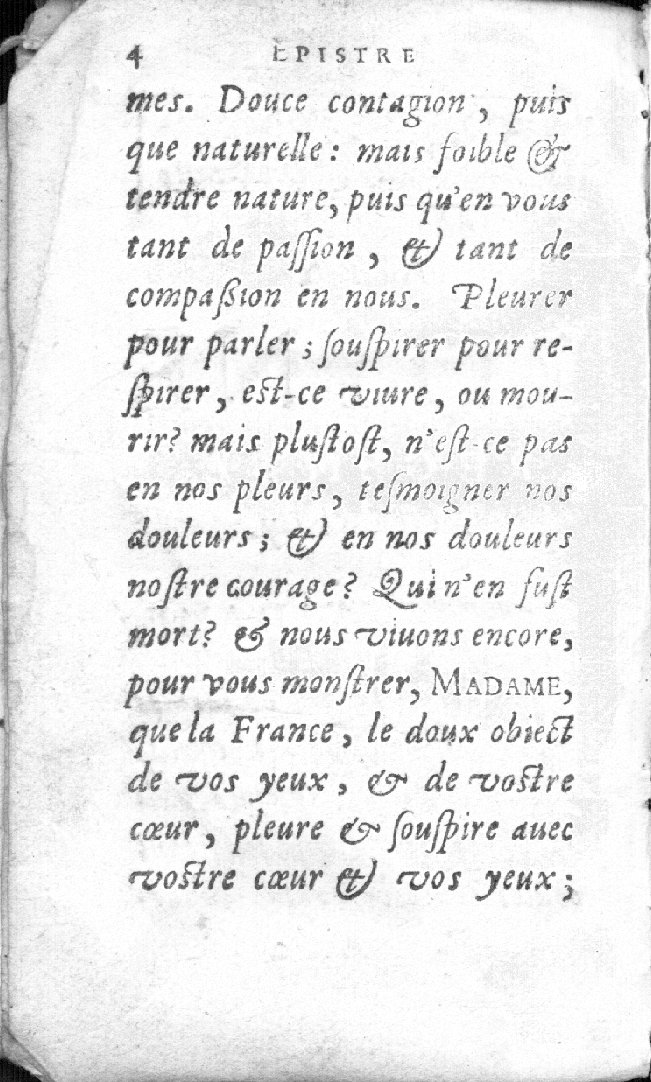 4 EPISTRE
mes. Douce contagion, puis
que naturelle: mais foible &
tendre nature, puis qu'en vous
tant de paſſion, & tant de
compaßion en nous. Pleurer
pour parler; ſouſpirer pour re-
ſpirer, eſt-ce viure, ou mou-
rir? mais pluſtoſt, n'eſt-ce pas
en nos pleurs, teſmoigner nos
douleurs; & en nos douleurs
noſtre courage? Qui n'en fuſt
mort? & nous viuons encore,
pour vous monſtrer, MADAME,
que la France, le doux obiect
de vos yeux, & de voſtre
cœur, pleure & ſouſpire auec
voſtre cœur & vos yeux;